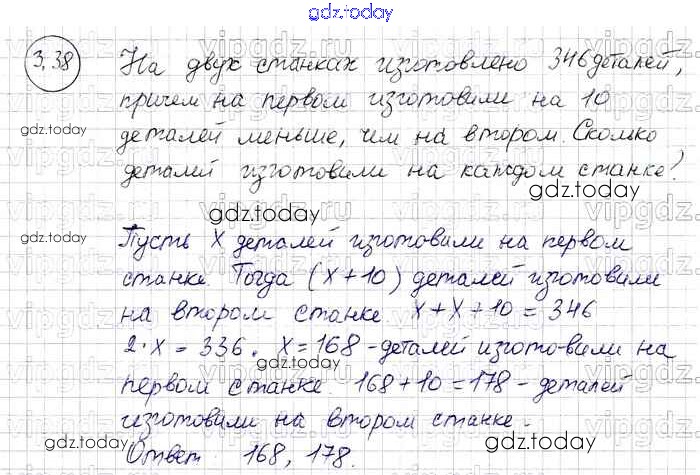 gdz.today
3.38
На двух станках изготовлено 346 деталей,
причем на первом изготовили на 10
gdz.today
деталей меньше, чем на втором. Сколко
деталей изготовили на каждом станке?
gdz.today
gdz.today
Пусть X деталей изготовили на первом
станке. Тогда (X+10) деталей изготовили
на втором станке X+X+10=346
2·X=336. X=168 - деталей изготовили на
gdz.today
первом станке 168+10=178 - деталей
gdz.today
изготовили на втором станке.
gdz.today
gdz.today
Ответ 168, 178.